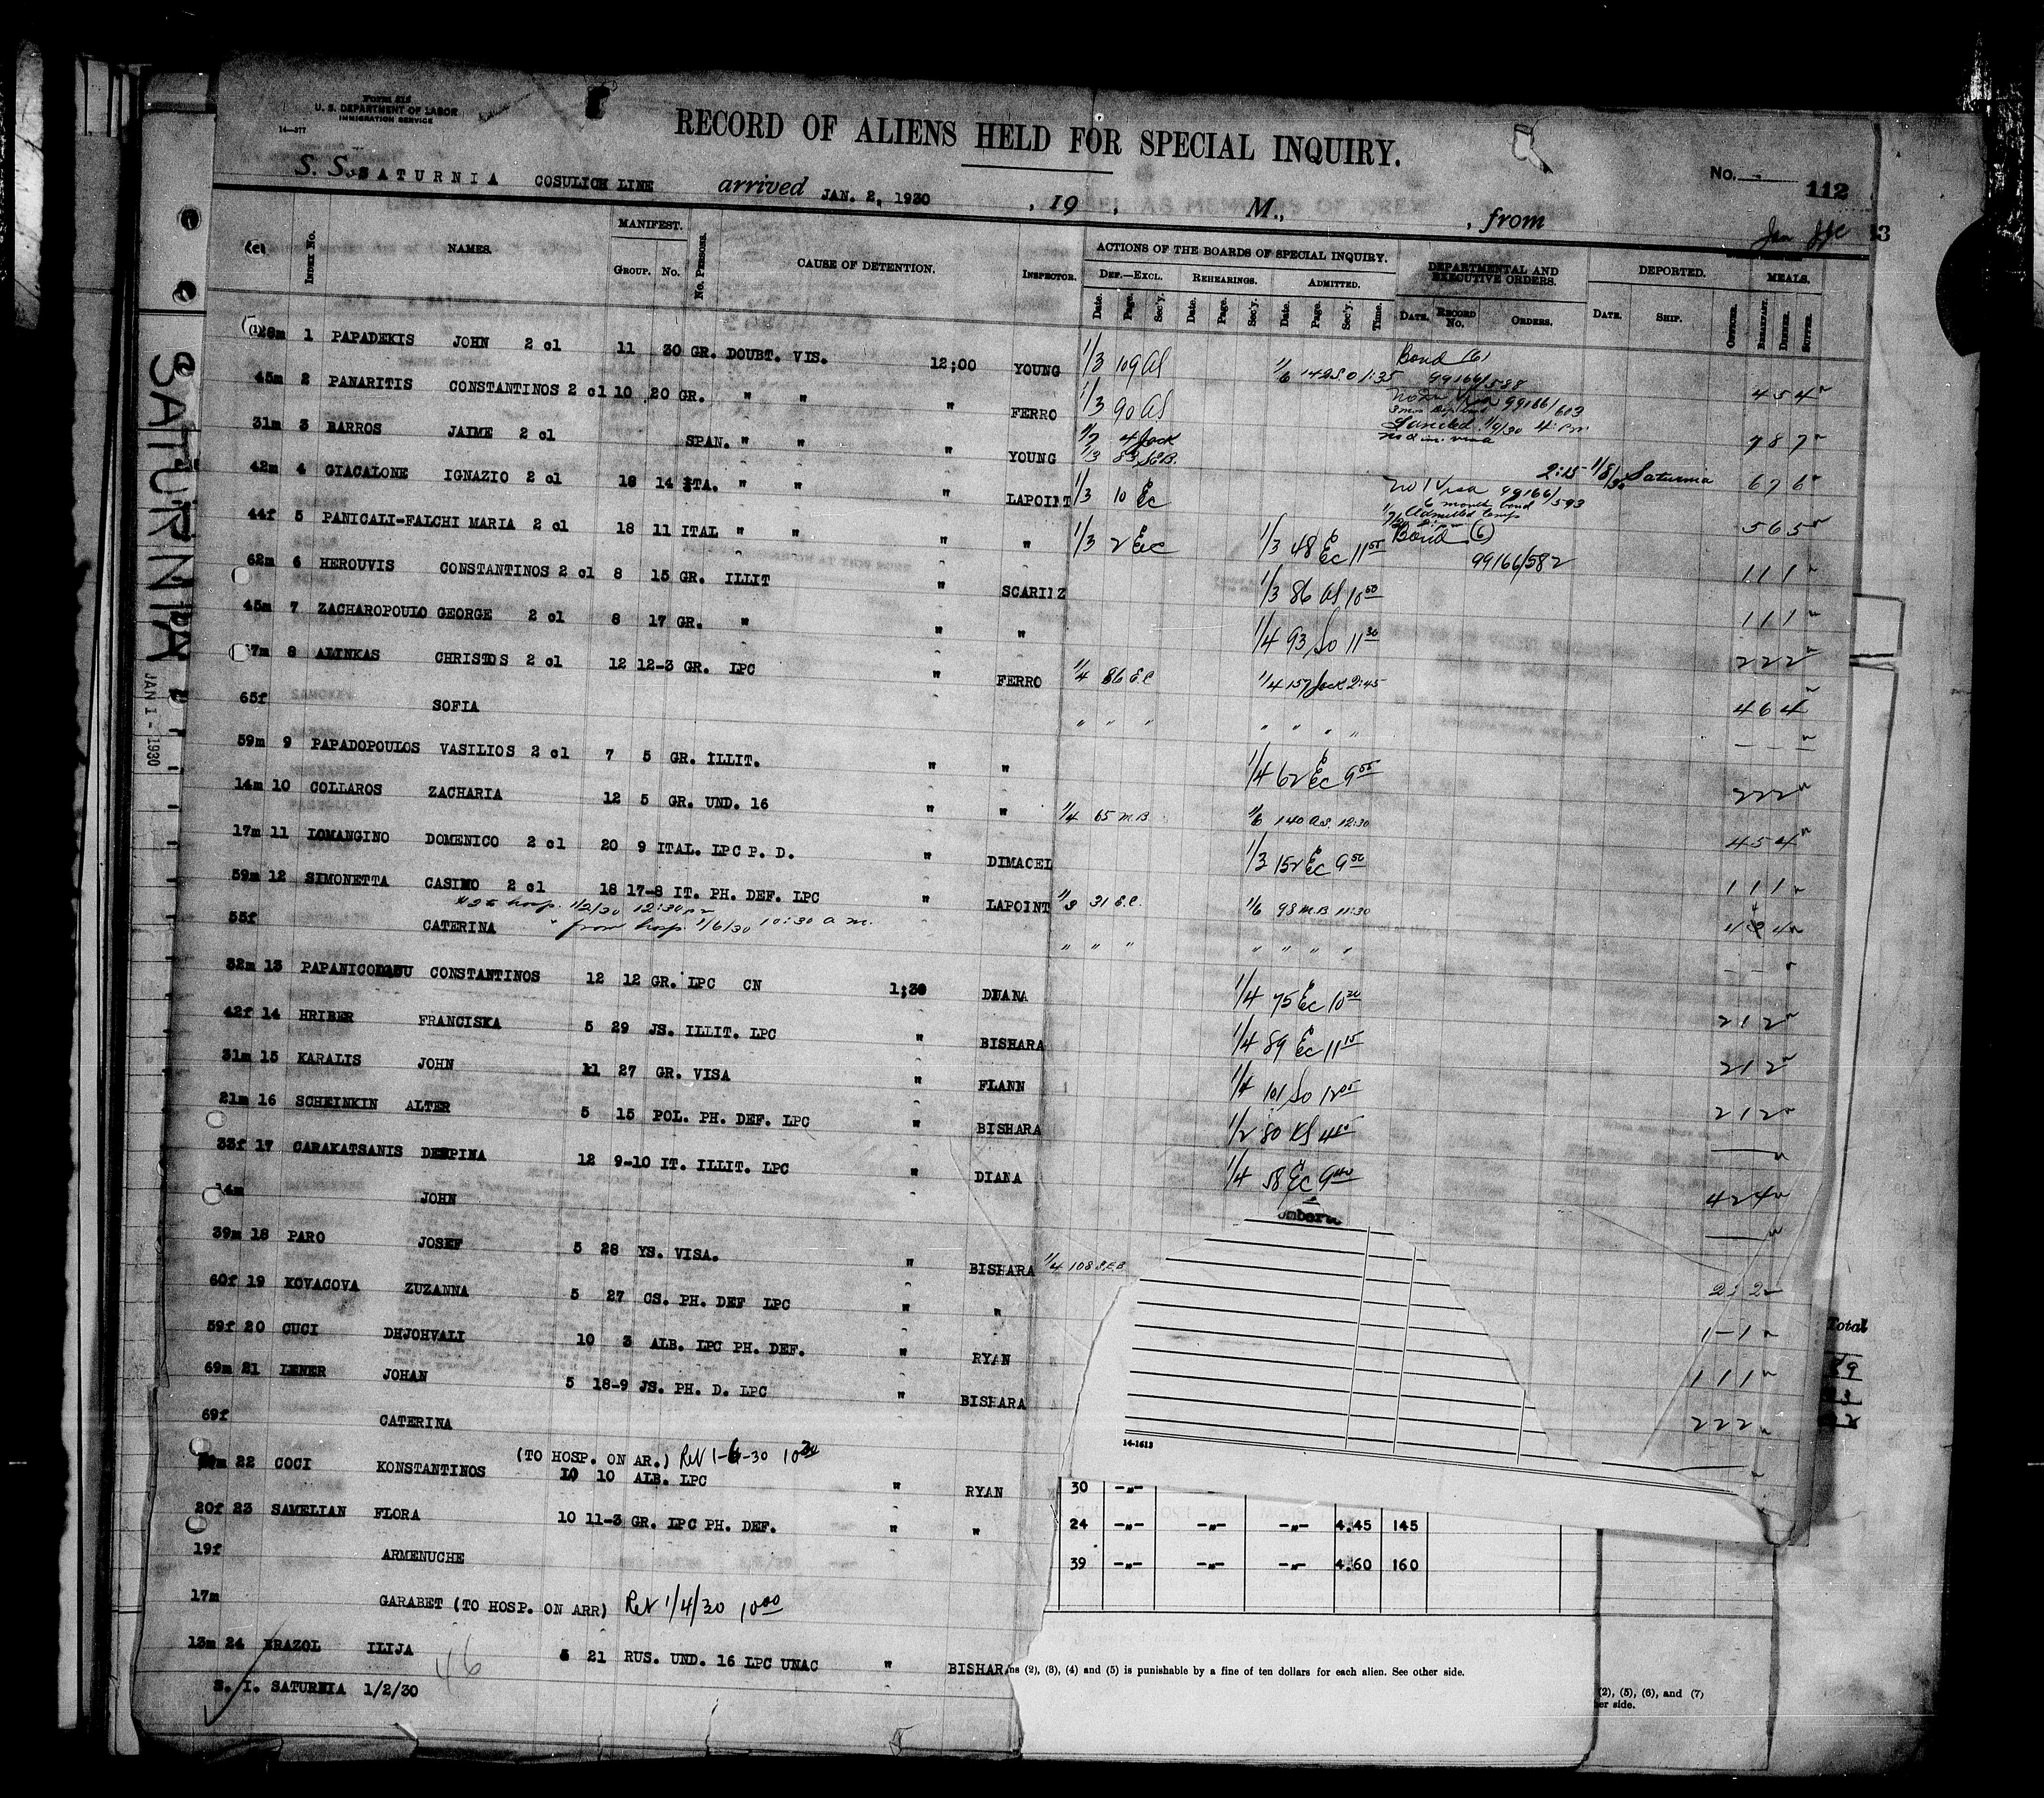 Form 515
U. S. DEPARTMENT OF LABOR
IMMIGRATION SERVICE
14—377
RECORD OF ALIENS HELD FOR SPECIAL INQUIRY.
No. 112
S. S. SATURNIA COSULICH LINE arrived JAN. 2, 1930 , 19 . M., , from
13
INDEX No. NAMES. MANIFEST. GROUP. No. No. PERSONS. CAUSE OF DETENTION. INSPECTOR.
ACTIONS OF THE BOARDS OF SPECIAL INQUIRY.
DEF.—EXCL. REHEARINGS. ADMITTED.
Date. Page. Sec'y. Date. Page. Sec'y. Date. Page. Sec'y. Time.
DEPARTMENTAL AND EXECUTIVE ORDERS.
DATE. RECORD No. ORDERS.
DEPORTED.
DATE. SHIP.
MEALS.
BREAKFAST. DINNER. SUPPER.
28m 1 PAPADEKIS JOHN 2 cl 11 30 GR. DOUBT. VIS. 12;00 YOUNG 1/3 109 AS 1/6 142 SO 1:35 Bond (6) 99166/588 4 5 4
45m 2 PANARITIS CONSTANTINOS 2 cl 10 20 GR. " " " FERRO 1/3 90 AS 99166/603 7 8 7
31m 3 BARROS JAIME 2 cl SPAN. " " " YOUNG 1/3 83 2:15 1/8/30 Saturnia 6 7 6
42m 4 GIACALONE IGNAZIO 2 cl 18 14 ITA. " " " LAPOINT 1/3 10 Ec No I Visa 99166/593 6 month bond Admitted temp 5 6 5
44f 5 PANICALI-FALCHI MARIA 2 cl 18 11 ITAL " " " " 1/3 2 Ec 1/3 48 Ec 11 05 Bond (6) 99166/582 1 1 1
62m 6 HEROUVIS CONSTANTINOS 2 cl 8 15 GR. ILLIT " 1/3 86 AS 10 00 1 1 1
45m 7 ZACHAROPOULO GEORGE 2 cl 8 17 GR. " " " 1/4 93 So 11 30 2 2 2
67m 8 ALINKAS CHRISTOS 2 cl 12 12-3 GR. LPC " FERRO 1/4 86 E.C 1/4 157 Jack 2:45 4 6 4
65f SOFIA " " " " " " "
59m 9 PAPADOPOULOS VASILIOS 2 cl 7 5 GR. ILLIT. " " 1/4 62 Ec 9 05 2 2 2
14m 10 COLLAROS ZACHARIA 12 5 GR. UND. 16 " " 1/4 65 M.B. 1/6 140 A.S. 12:30 4 5 4
17m 11 LOMANGINO DOMENICO 2 cl 20 9 ITAL. LPC P. D. " DIMACEL 1/3 152 Ec 9 50 1 1 1
59m 12 SIMONETTA CASIMO 2 cl 18 17-8 IT. PH. DEF. LPC " LAPOINT 1/3 31 E.C. 1/6 98 M.B 11:30
hosp. 1/2/30 12:30
55f CATERINA " from hosp. 1/6/30 10:30 a m. " " " " " " "
32m 13 PAPANICOLAOU CONSTANTINOS 12 12 GR. LPC CN 1;30 DIANA 1/4 75 Ec 10 20 2 1 2
42f 14 HRIBER FRANCISKA 5 29 JS. ILLIT. LPC " BISHARA 1/4 89 Ec 11 15 2 1 2
31m 15 KARALIS JOHN 11 27 GR. VISA " FLANN 1/4 101 So 12 05 2 1 2
21m 16 SCHEINKIN ALTER 5 15 POL. PH. DEF. LPC " BISHARA 1/2 80 KS
33f 17 CARAKATSANIS DESPINA 12 9-10 IT. ILLIT. LPC " DIANA 1/4 58 Ec 9 40 4 2 4
14m JOHN
39m 18 PARO JOSEF 5 28 YS. VISA. " BISHARA 1/4 108 S.E.B.
60f 19 KOVACOVA ZUZANNA 5 27 CS. PH. DEF LPC " " 1 - 1
59f 20 CUCI DHJOHVALI 10 3 ALB. LPC PH. DEF. " RYAN 1 1 1
69m 21 LENER JOHAN 5 18-9 JS. PH. D. LPC " BISHARA 2 2 2
69f CATERINA
(TO HOSP. ON AR.) Ret 1-6-30 10 30
22 COCI KONSTANTINOS 10 10 ALB. LPC " RYAN
20f 23 SAMELIAN FLORA 10 11-3 GR. LPC PH. DEF. " "
19f ARMENUCHE
17m GARABET (TO HOSP. ON ARR) Ret 1/4/30 10 00
13m 24 BRAZOL ILIJA 5 21 RUS. UND. 16 LPC UNAC " BISHARA
46
S. I. SATURNIA 1/2/30
Total
14-1613
30 -"-
24 -"- -"- -"- 4.45 145
39 -"- -"- -"- 4.60 160
ns (2), (3), (4) and (5) is punishable by a fine of ten dollars for each alien. See other side.
(2), (5), (6), and (7)
er side.
SATURNIA
JAN 1 - 1930